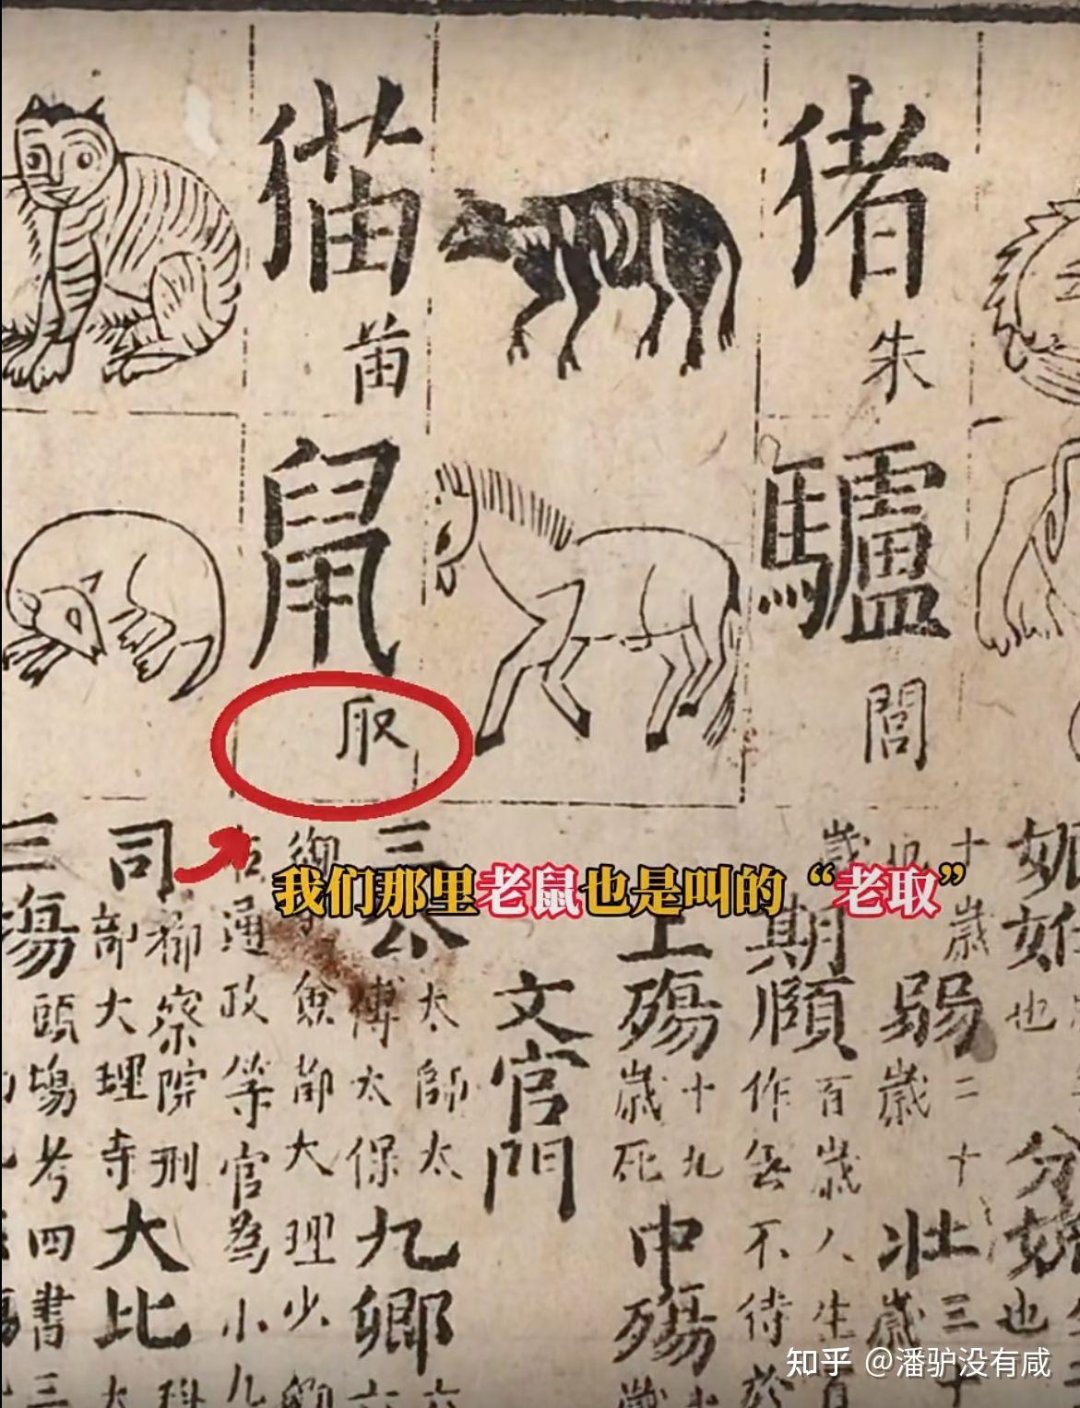 猪
朱
驢
閭
猫
苗
鼠
取
分娩也
弱
歲二十
壯
歲三十
期頤
百歲人生百
作無不待於
上殤
十九
歲死
中殤
文官門
三公
太師太
傅太保
九卿
僉都大理少卿
右通政等官為小九
司
都察院刑
部大理寺
大比
三場
頭場考四書三
我们那里老鼠也是叫的“老取”
知乎 @潘驴没有咸